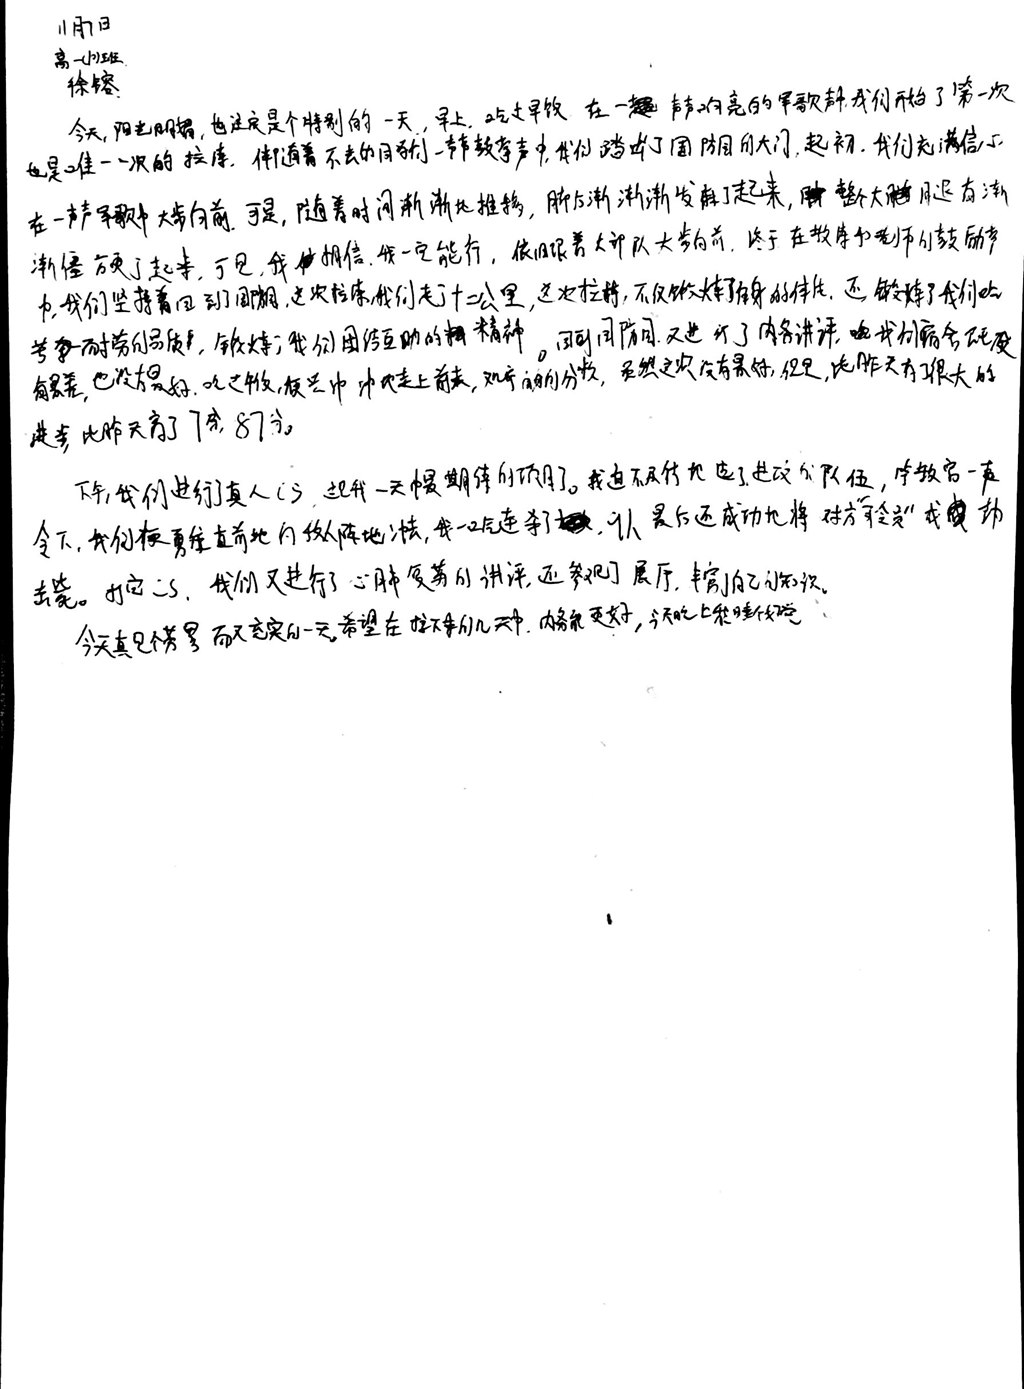 11月7日
高一(12)班
徐镕
今天,阳光明媚,也注定是个特别的一天,早上,吃过早饭 在一声声响亮的军歌声,我们开始了第一次
也是唯一一次的拉练.伴随着不去的同学们一声声鼓掌声中,我们踏出了国防园的大门,起初,我们充满信心
在一声声军歌中大步向前.可是,随着时间渐渐地推移,脚后渐渐渐发麻了起来,整个大腿有渐
渐僵硬了起来,可是,我相信,我一定能行,依旧跟着大部队大步向前.终于在教官和老师的鼓励声
中,我们坚持着回到了国防园,这次拉练,我们走了十二公里,这次拉练,不仅锻炼了自身的体能.还锻炼了我们吃
苦耐劳的品质,锻炼了我们团结互助的精神。回到国防园,又进行了内务讲评.我们宿舍
最差,也没有最好.吃过午饭,便兴冲冲地走上前去,观看的分数,虽然这次没有最好,但是,比昨天有了很大的
进步,比昨天高了7分,87分。
下午,我们进行了真人CS,是我一天中最期待的项目了。我迫不及待地选了进攻分队伍,随教官一声
令下,我们便勇往直前地向敌人阵地冲去,我一口气连杀了 人 最后还成功地将对方"司令官"成功
击毙。打完CS,我们又进行了心肺复苏的讲评,还参观了展厅,丰富自己的知识。
今天真是个劳累而又充实的一天。希望在接下来的几天中,内务能更好,今天晚上